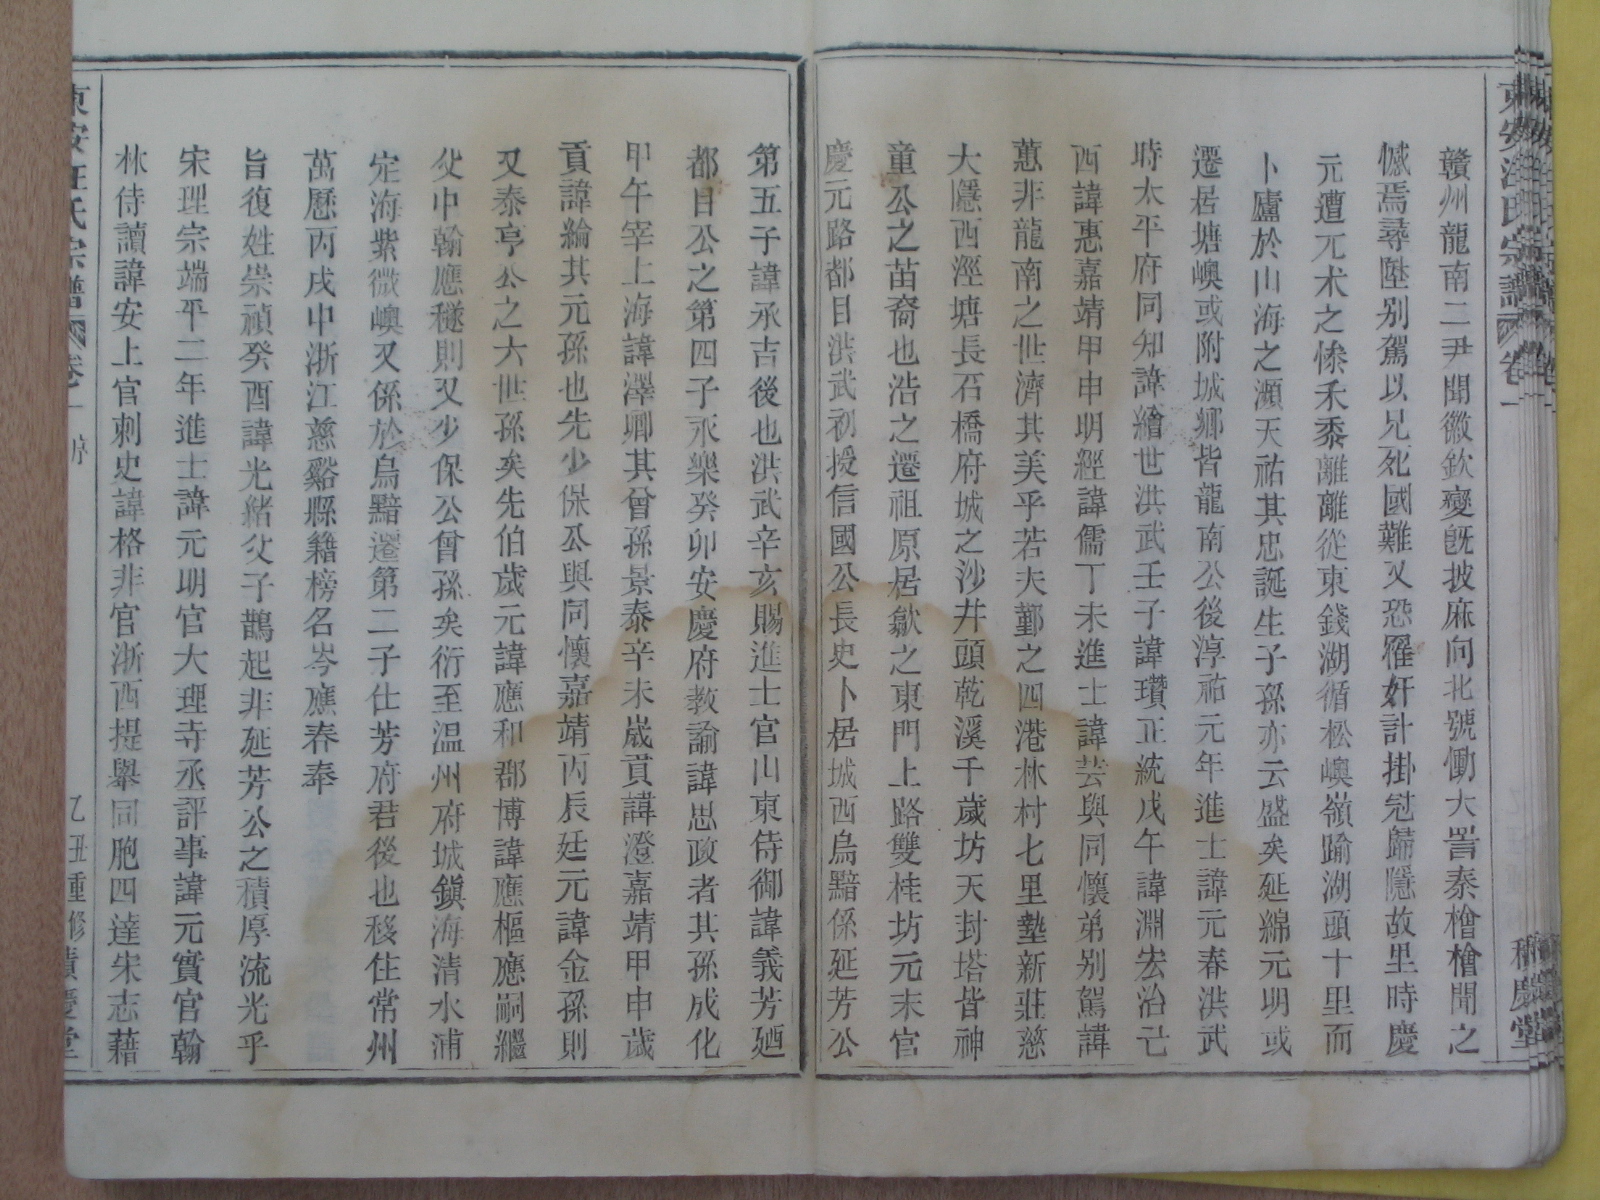 東安汪氏宗譜 卷一
積慶堂
贛州龍南二尹聞徽欽變旣披麻向北號慟大詈秦檜檜聞之
憾焉尋陞别駕以兄死國難又恐罹奸計掛冠歸隱故里時慶
元遭兀朮之慘禾黍離離從東錢湖循松嶴嶺踰湖頭十里而
卜廬於山海之瀕天祐其忠誕生子孫亦云盛矣延綿元明或
遷居塘嶴或附城鄉皆龍南公後淳祐元年進士諱元春洪武
時太平府同知諱繪世洪武壬子諱瓚正統戊午諱淵宏治己
酉諱惠嘉靖甲申明經諱儒丁未進士諱芸與同懷弟别駕諱
蕙非龍南之世濟其美乎若夫鄞之四港林村七里墊新莊慈
大隱西溼塘長石橋府城之沙井頭乾溪千歲坊天封塔皆神
童公之苗裔也浩之遷祖原居歙之東門上路雙桂坊元末官
慶元路都目洪武初授信國公長史卜居城西烏黯係延芳公
第五子諱承吉後也洪武辛亥賜進士官山東侍御諱義芳廼
都目公之第四子永樂癸卯安慶府教諭諱思政者其孫成化
甲午宰上海諱澤卿其曾孫景泰辛未歲貢諱澄嘉靖甲申歲
貢諱綸其元孫也先少保公與同懷嘉靖丙辰廷元諱金孫則
又泰亨公之六世孫矣先伯歲元諱應和郡博諱應樞應嗣繼
父中翰應𥠖則又少保公曾孫矣衍至溫州府城鎭海清水浦
定海紫微嶴又係於烏黯遷第二子仕芳府君後也移住常州
萬歷丙戌中浙江慈谿縣籍榜名岑應春奉
旨復姓崇禎癸酉諱光緒父子鵲起非延芳公之積厚流光乎
宋理宗端平二年進士諱元明官大理寺丞評事諱元實官翰
林侍讀諱安上官刺史諱格非官浙西提舉同胞四達宋志藉
東安汪氏宗譜 卷一 序
乙丑重修積慶堂